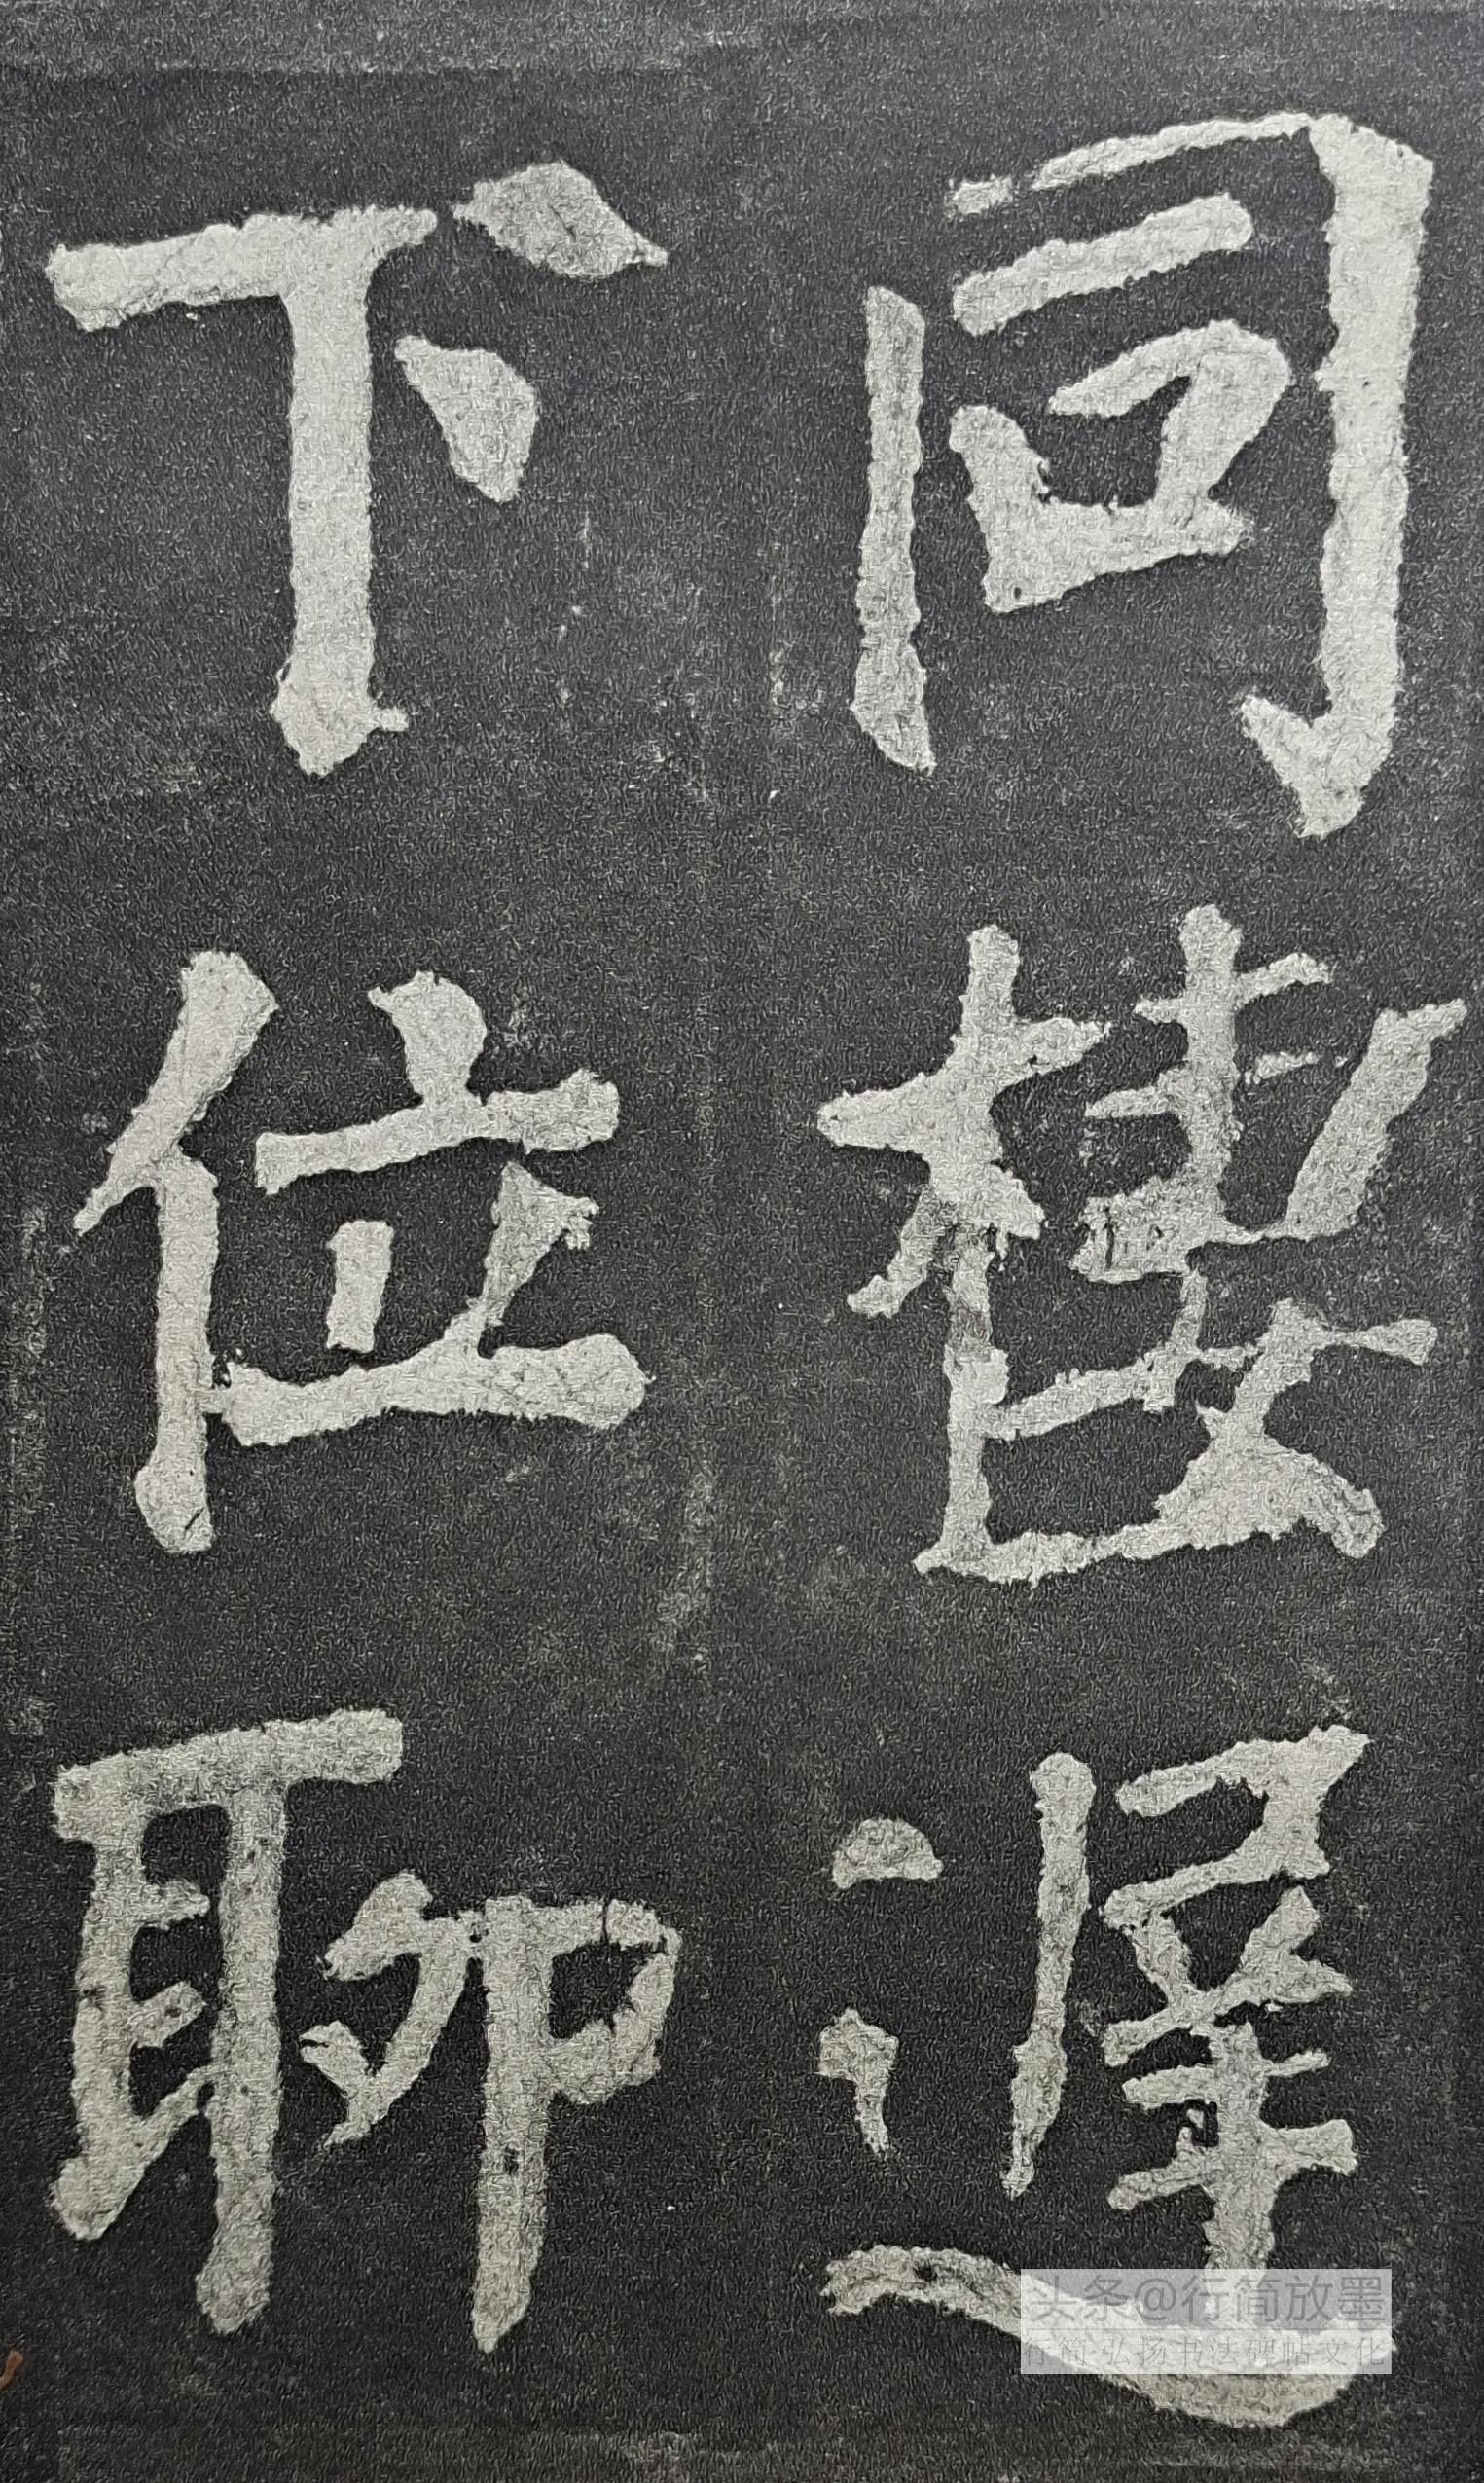 同棲遅
下位聊
头条@行简放墨
行简·弘扬书法碑帖文化